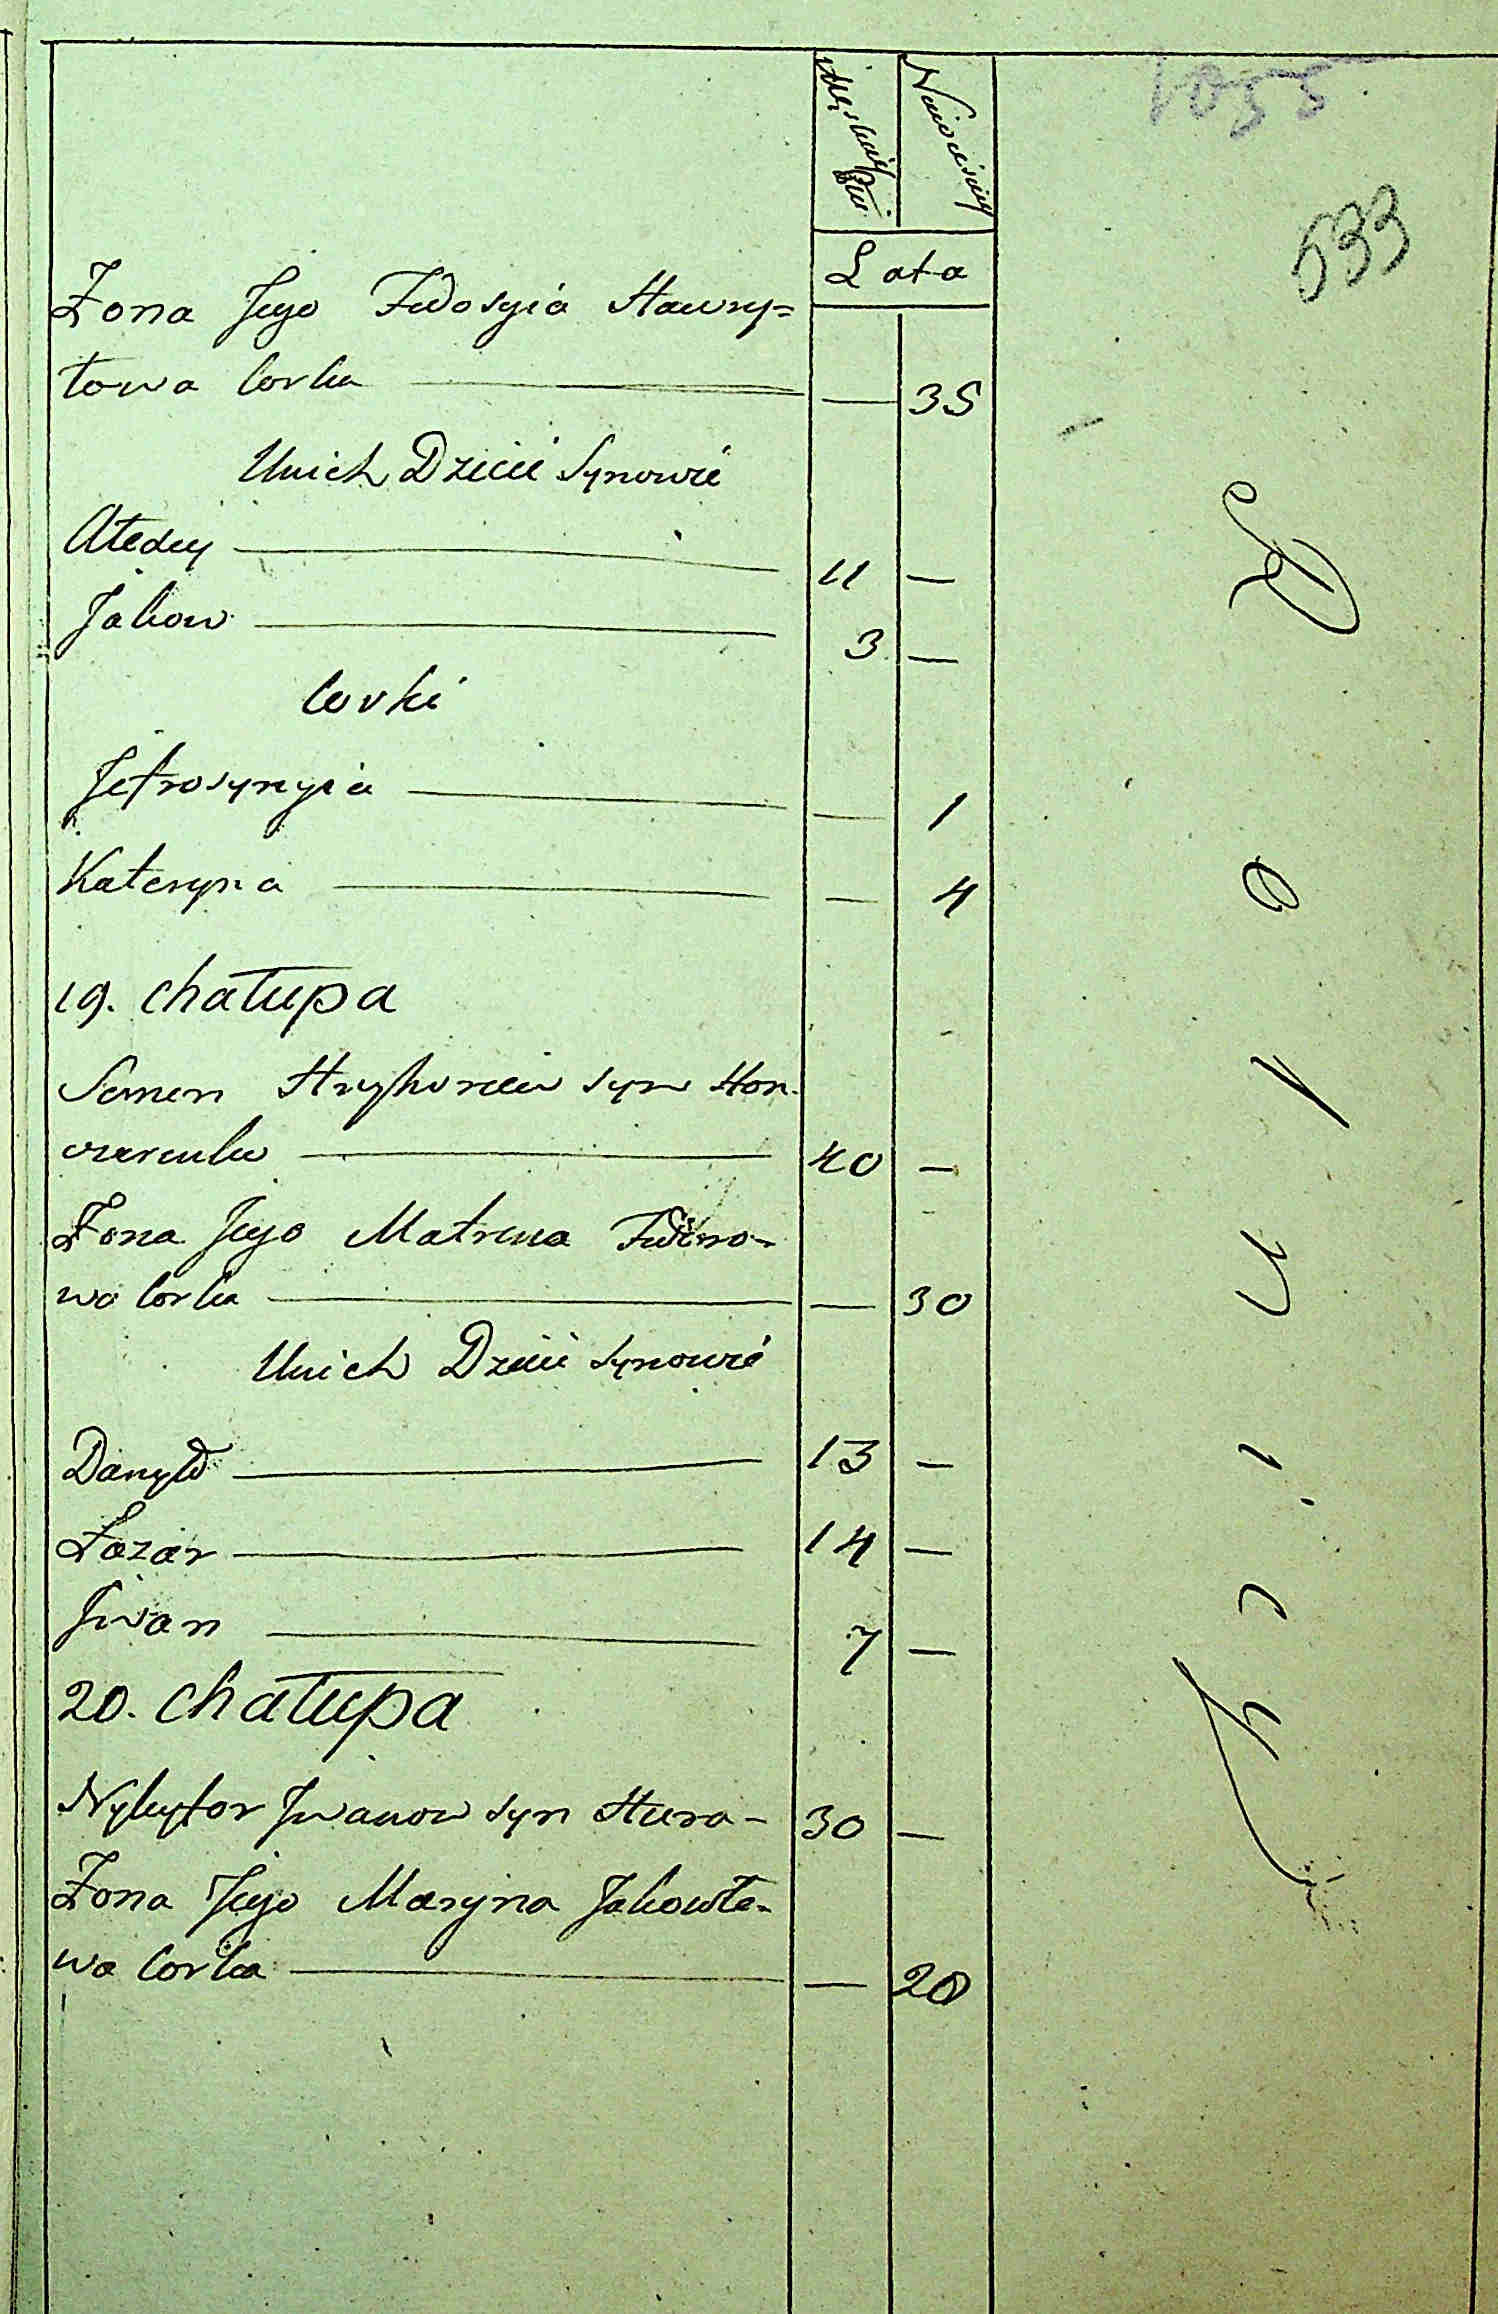 1055
533
Męskiey Płci
Niewieściey
Lata
Żona Jego Fedosyia Hawry=
łowa Corka — 35
Unich Dzieci Synowie
Jakow 3 —
Corki
Jefrosynyia — 1
Kateryna — 4
19. chałupa
Semen Hryhoriew syn Hon-
czarenko 40 —
Żona Jego Matrena Fedoro-
wa Corka — 30
Unich Dzieci Synowie
Danyło 13 —
Łazar 14 —
Iwan 7 —
20. chałupa
Nykyfor Iwanow syn Hura- 30 —
Żona Jego Maryna Jakowłe-
wa Corka — 20